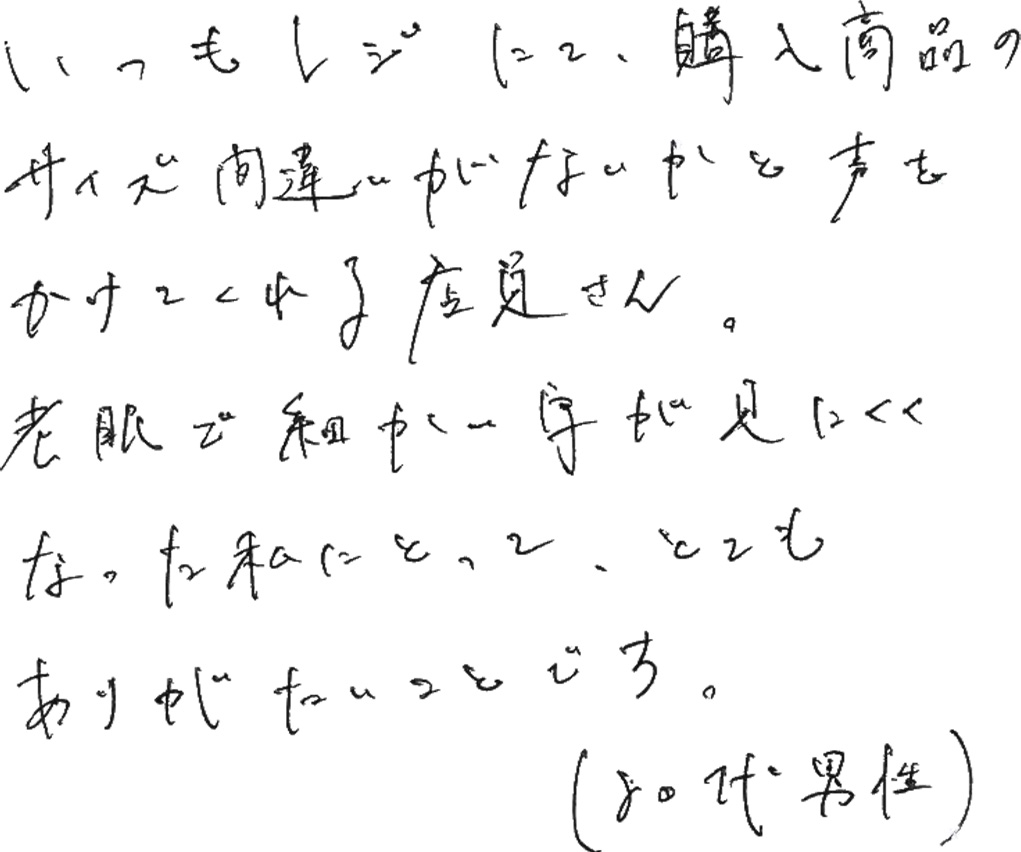 いつもレジにて、購入商品の
サイズ間違いがないかと声を
かけてくれる店員さん。
老眼で細かい字が見にくく
なった私にとって、とても
ありがたいことです。
(50代男性)